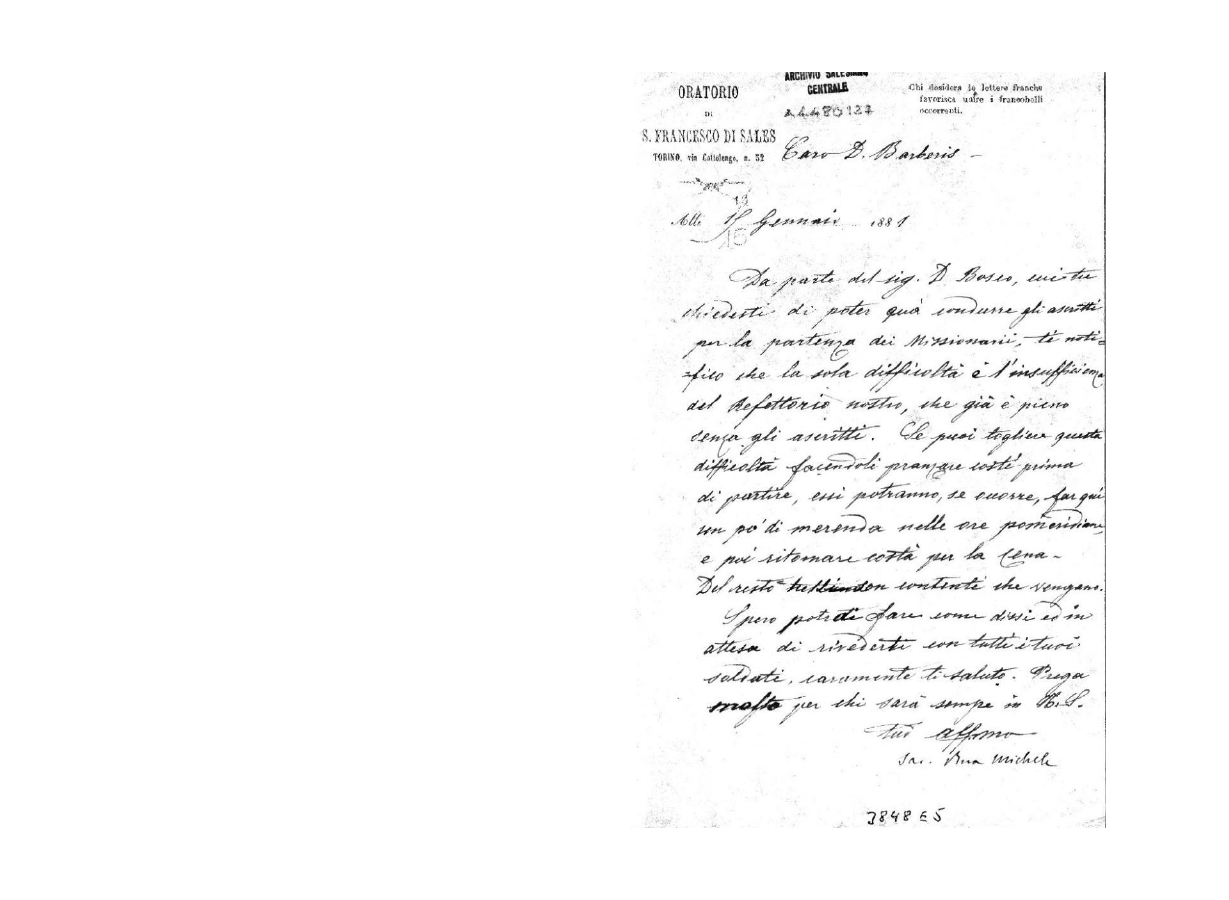 ARCHIVIO SALESIANO
CENTRALE
ORATORIO
DI
S. FRANCESCO DI SALES
TORINO, via Cottolengo, n. 32
Chi desidera le lettere franche
favorisca unire i francobolli
occorrenti.
Caro D. Barberis -
Alli 15 Gennaio 1881
Da parte del sig. D. Bosco, cui tu
chiedesti di poter quà condurre gli ascritti
per la partenza dei Missionarii, ti noti=
=fico che la sola difficoltà è l'insufficienza
del Refettorio nostro, che già è pieno
senza gli ascritti. Se puoi togliere questa
difficoltà facendoli pranzare costì prima
di partire, essi potranno, se occorre, far quì
un po' di merenda nelle ore pomeridiane
e poi ritornare costà per la cena -
Del resto contenti che vengano.
Spero potrai fare come dissi ed in
attesa di rivederti con tutti i tuoi
soldati, caramente ti saluto. Prega
molto per chi sarà sempe in N. S.
tuo affmo
Sac. Rua Michele
3848 E 5